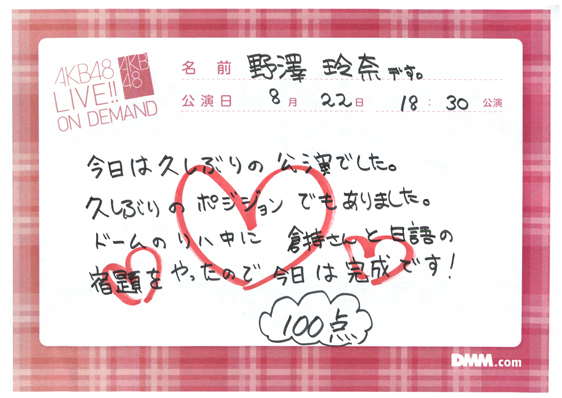 AKB48
LIVE!!
ON DEMAND
AKB
48
名前 野澤 玲奈です。
公演日 8月 22日 18:30 公演
今日は久しぶりの公演でした。
久しぶりのポジションでもありました。
ドームのリハ中に 倉持さんと日語の
宿題をやったので今日は完成です!
100点
DMM.com